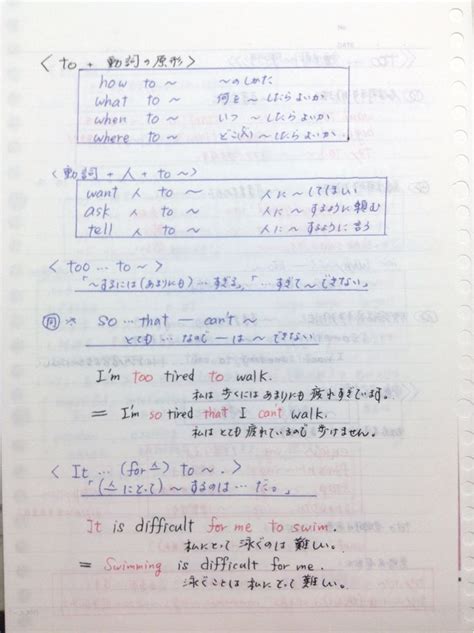 〈 to + 動詞の原形 〉
how to ~ ~のしかた
what to ~ 何を~したらよいか
when to ~ いつ~したらよいか
where to ~ どこ(へ)~したらよいか
〈 動詞 + 人 + to ~ 〉
want 人 to ~ 人に~してほしい
ask 人 to ~ 人に~するように頼む
tell 人 to ~ 人に~するように言う
〈 too … to ~ 〉
「~するには(あまりにも)…すぎる」「…すぎて~できない」
so … that — can't ~
とても…なので—は~できない
I'm too tired to walk.
私は歩くにはあまりにも疲れすぎています。
= I'm so tired that I can't walk.
私はとても疲れているので歩けません。
〈 It … (for △) to ~ . 〉
「(△にとって)~するのは…だ。」
It is difficult for me to swim.
私にとって泳ぐのは難しい。
= Swimming is difficult for me.
泳ぐことは私にとって難しい。